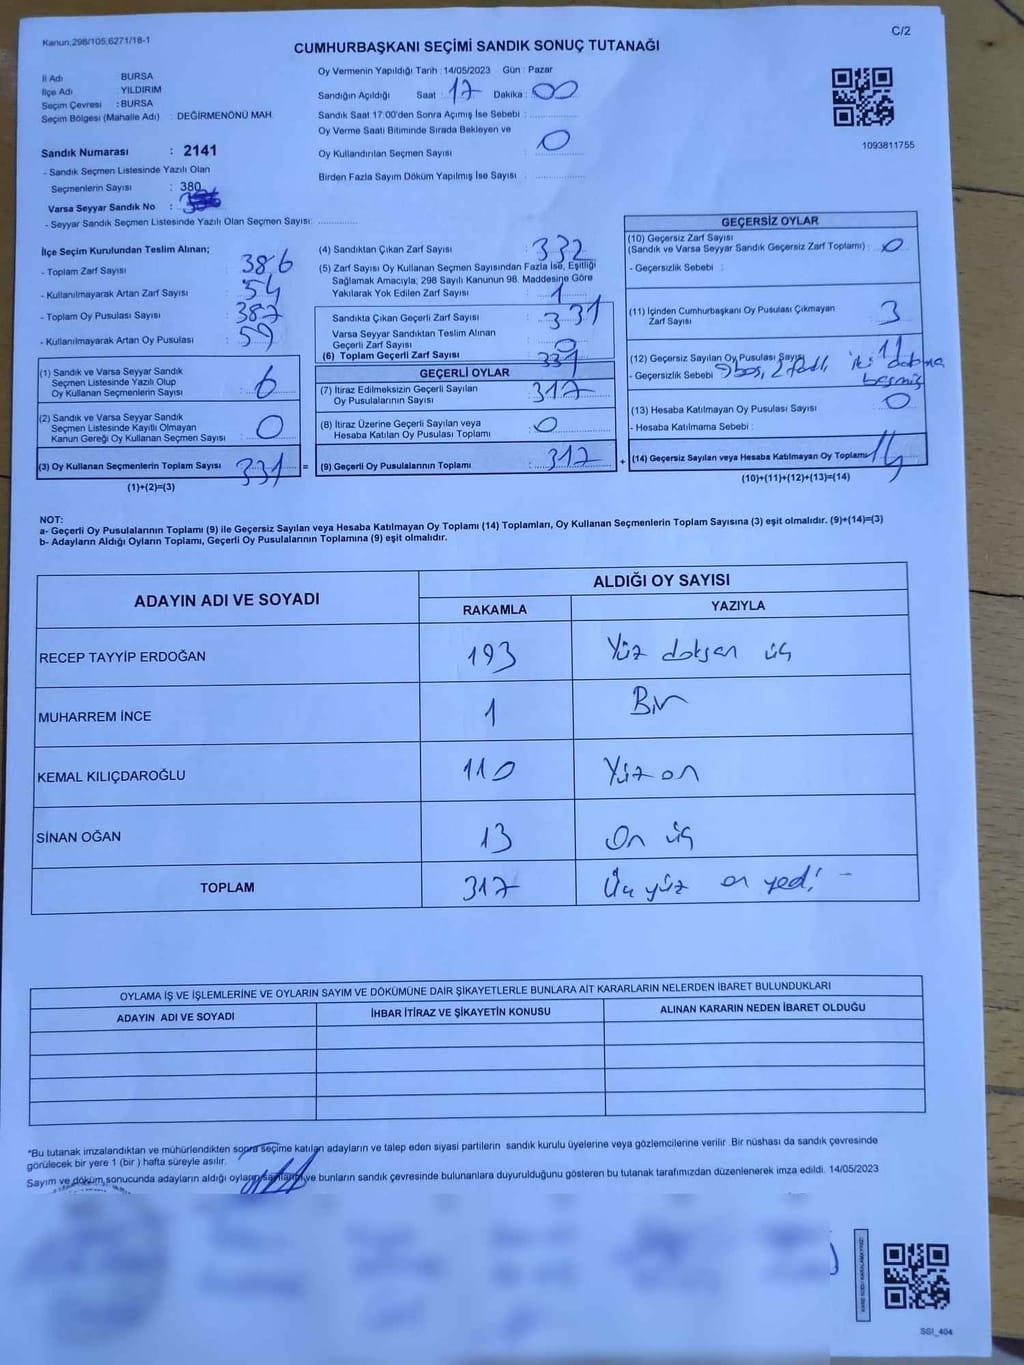 Kanun:298/105;6271/18-1
C/2
CUMHURBAŞKANI SEÇİMİ SANDIK SONUÇ TUTANAĞI
İl Adı : BURSA
İlçe Adı : YILDIRIM
Seçim Çevresi : BURSA
Seçim Bölgesi (Mahalle Adı) : DEĞİRMENÖNÜ MAH.
Sandık Numarası : 2141
- Sandık Seçmen Listesinde Yazılı Olan
Seçmenlerin Sayısı : 380
Varsa Seyyar Sandık No :
- Seyyar Sandık Seçmen Listesinde Yazılı Olan Seçmen Sayısı:
Oy Vermenin Yapıldığı Tarih : 14/05/2023 Gün : Pazar
Sandığın Açıldığı Saat : 17 Dakika : 00
Sandık Saat 17:00'den Sonra Açılmış İse Sebebi :
Oy Verme Saati Bitiminde Sırada Bekleyen ve
Oy Kullandırılan Seçmen Sayısı : 0
Birden Fazla Sayım Döküm Yapılmış İse Sayısı :
1093811755
İlçe Seçim Kurulundan Teslim Alınan;
- Toplam Zarf Sayısı : 386
- Kullanılmayarak Artan Zarf Sayısı : 54
- Toplam Oy Pusulası Sayısı : 387
- Kullanılmayarak Artan Oy Pusulası : 59
(1) Sandık ve Varsa Seyyar Sandık
Seçmen Listesinde Yazılı Olup
Oy Kullanan Seçmenlerin Sayısı : 6
(2) Sandık ve Varsa Seyyar Sandık
Seçmen Listesinde Kayıtlı Olmayan
Kanun Gereği Oy Kullanan Seçmen Sayısı : 0
(3) Oy Kullanan Seçmenlerin Toplam Sayısı : 331 =
(1)+(2)=(3)
(4) Sandıktan Çıkan Zarf Sayısı : 332
(5) Zarf Sayısı Oy Kullanan Seçmen Sayısından Fazla İse, Eşitliği
Sağlamak Amacıyla; 298 Sayılı Kanunun 98. Maddesine Göre
Yakılarak Yok Edilen Zarf Sayısı : 1
Sandıkta Çıkan Geçerli Zarf Sayısı : 331
Varsa Seyyar Sandıktan Teslim Alınan
Geçerli Zarf Sayısı : 0
(6) Toplam Geçerli Zarf Sayısı 331
GEÇERLİ OYLAR
(7) İtiraz Edilmeksizin Geçerli Sayılan
Oy Pusulalarının Sayısı : 317
(8) İtiraz Üzerine Geçerli Sayılan veya
Hesaba Katılan Oy Pusulası Toplamı : 0
(9) Geçerli Oy Pusulalarının Toplamı : 317 +
GEÇERSİZ OYLAR
(10) Geçersiz Zarf Sayısı
(Sandık ve Varsa Seyyar Sandık Geçersiz Zarf Toplamı) : 0
- Geçersizlik Sebebi :
(11) İçinden Cumhurbaşkanı Oy Pusulası Çıkmayan
Zarf Sayısı : 3
(12) Geçersiz Sayılan Oy Pusulası Sayısı 11
- Geçersizlik Sebebi 9 boş, 2 fazla, iki
(13) Hesaba Katılmayan Oy Pusulası Sayısı : 0
- Hesaba Katılmama Sebebi :
(14) Geçersiz Sayılan veya Hesaba Katılmayan Oy Toplamı 14
(10)+(11)+(12)+(13)=(14)
NOT:
a- Geçerli Oy Pusulalarının Toplamı (9) ile Geçersiz Sayılan veya Hesaba Katılmayan Oy Toplamı (14) Toplamları, Oy Kullanan Seçmenlerin Toplam Sayısına (3) eşit olmalıdır. (9)+(14)=(3)
b- Adayların Aldığı Oyların Toplamı, Geçerli Oy Pusulalarının Toplamına (9) eşit olmalıdır.
ADAYIN ADI VE SOYADI
ALDIĞI OY SAYISI
RAKAMLA YAZIYLA
RECEP TAYYİP ERDOĞAN 193 Yüz doksan üç
MUHARREM İNCE 1 Bir
KEMAL KILIÇDAROĞLU 110 Yüz on
SİNAN OĞAN 13 On üç
TOPLAM 317 Üç yüz on yedi -
OYLAMA İŞ VE İŞLEMLERİNE VE OYLARIN SAYIM VE DÖKÜMÜNE DAİR ŞİKAYETLERLE BUNLARA AİT KARARLARIN NELERDEN İBARET BULUNDUKLARI
ADAYIN ADI VE SOYADI İHBAR İTİRAZ VE ŞİKAYETİN KONUSU ALINAN KARARIN NEDEN İBARET OLDUĞU
*Bu tutanak imzalandıktan ve mühürlendikten sonra seçime katılan adayların ve talep eden siyasi partilerin sandık kurulu üyelerine veya gözlemcilerine verilir .Bir nüshası da sandık çevresinde
görülecek bir yere 1 (bir ) hafta süreyle asılır.
Sayım ve döküm sonucunda adayların aldığı oyların sayılarını ve bunların sandık çevresinde bulunanlara duyurulduğunu gösteren bu tutanak tarafımızdan düzenlenerek imza edildi. 14/05/2023
KARE KODU KARALAMAYINIZ!
SSI_404